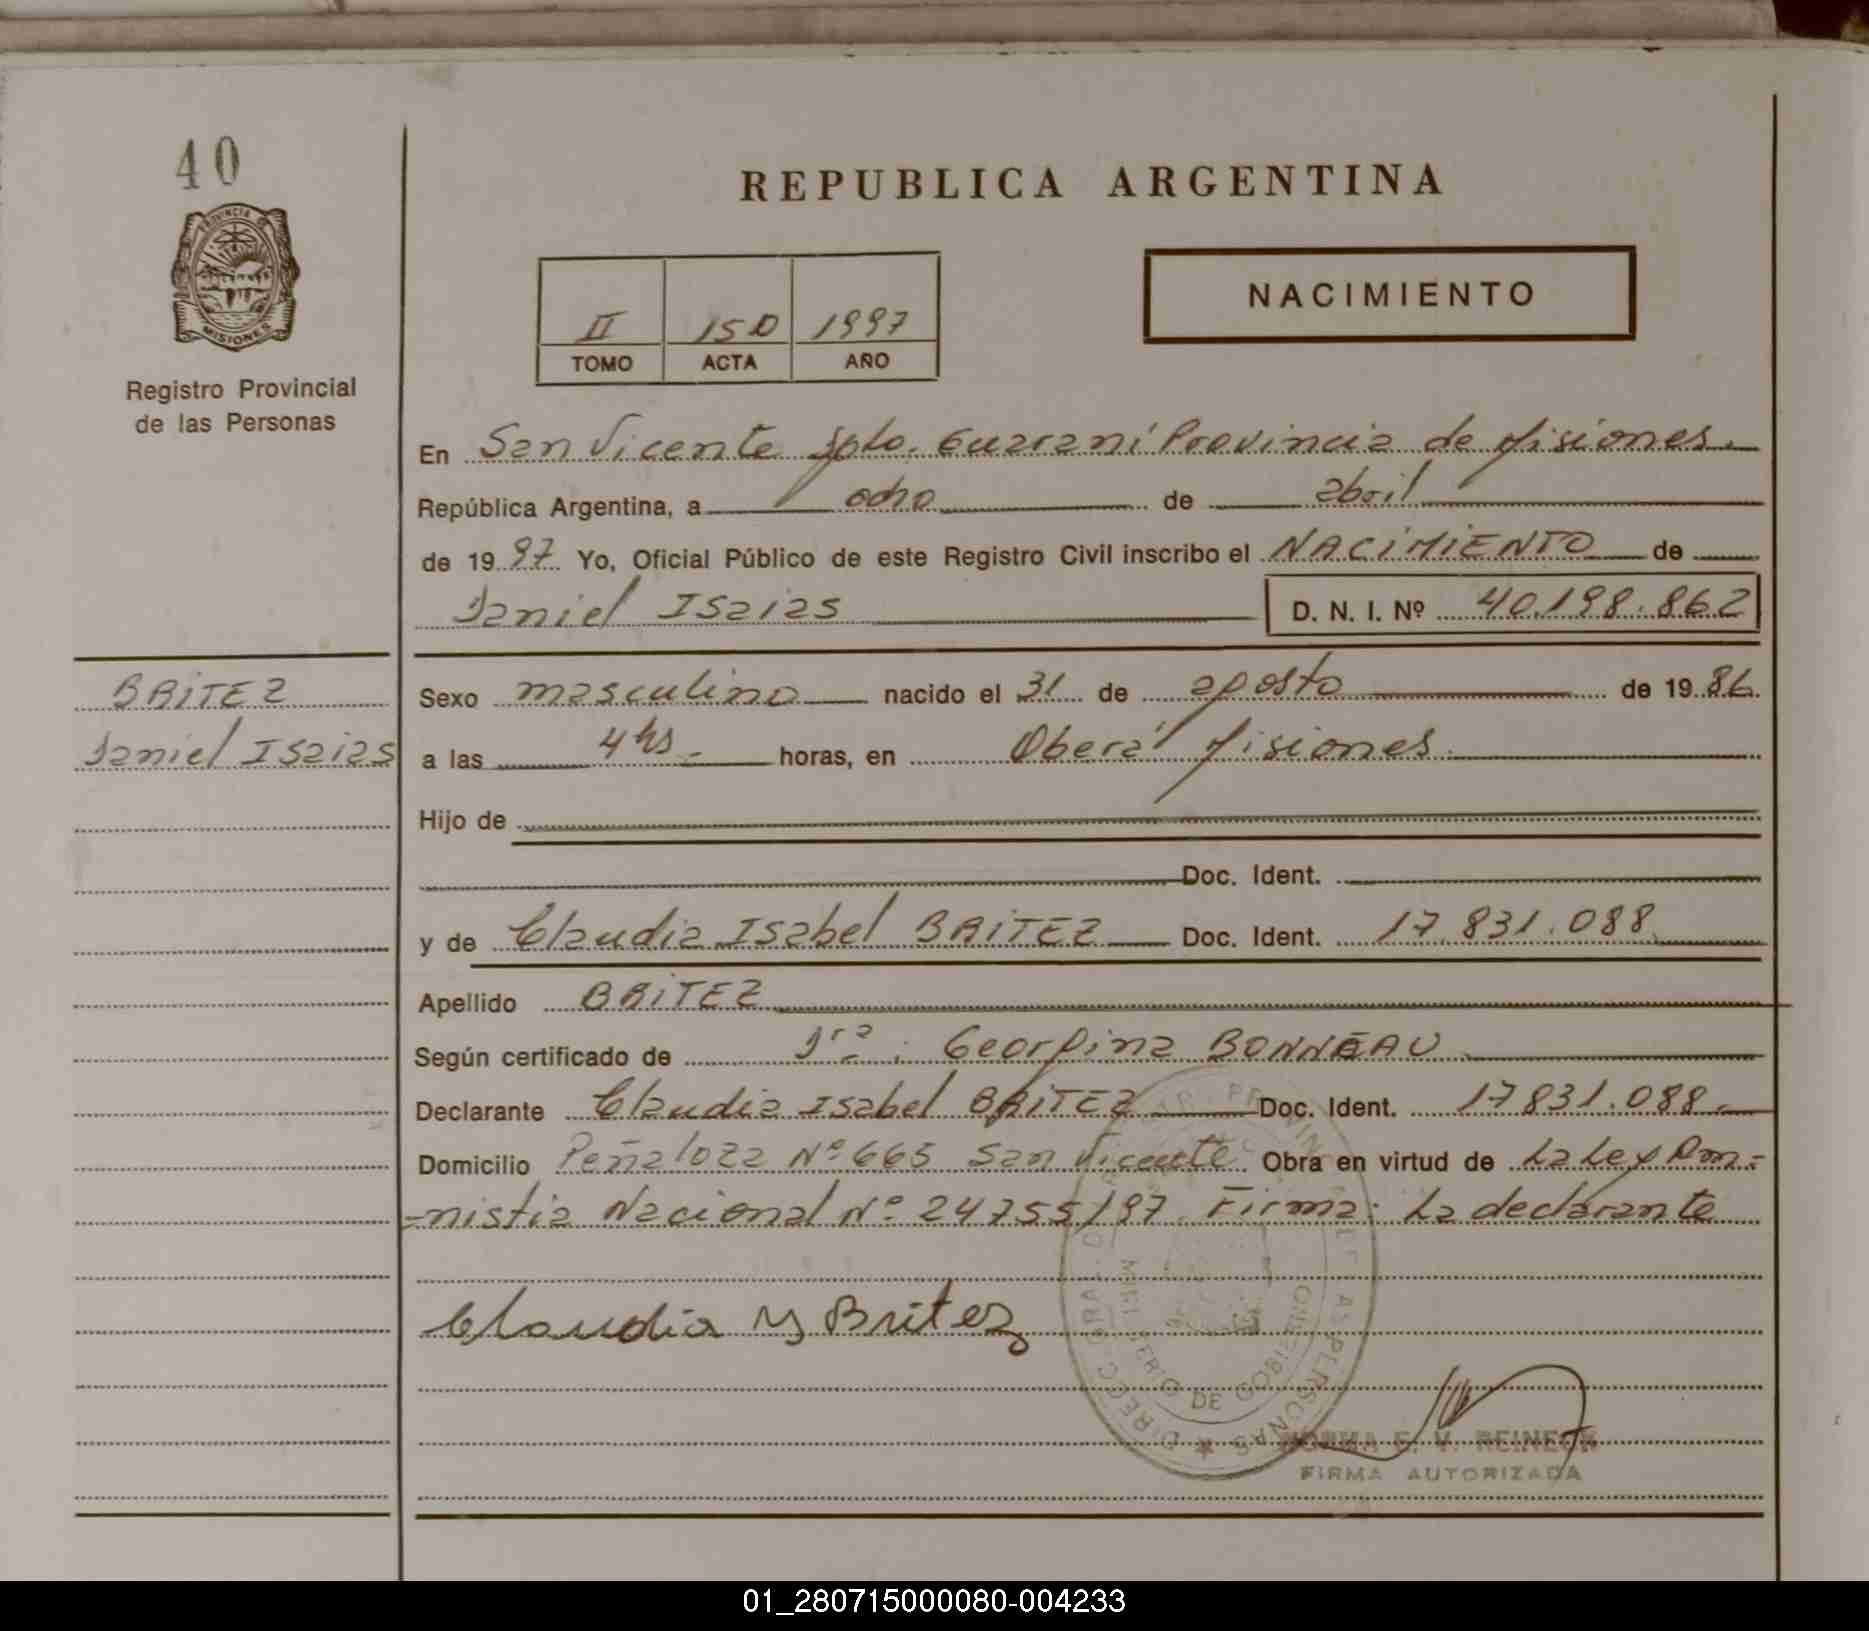 40
REPUBLICA ARGENTINA
PROVINCIA DE
MISIONES
Registro Provincial
de las Personas
II 150 1997
TOMO ACTA AÑO
NACIMIENTO
En San Vicente Dpto. Guaraní Provincia de Misiones.
República Argentina, a ocho de abril
de 1997 Yo, Oficial Público de este Registro Civil inscribo el NACIMIENTO de
Daniel Isaias D. N. I. Nº 40.198.862
BRITEZ
Daniel Isaias
Sexo masculino nacido el 31 de agosto de 1986.
a las 4 hs. horas, en Oberá Misiones.
Hijo de
Doc. Ident.
y de Claudia Isabel BRITEZ Doc. Ident. 17.831.088
Apellido BRITEZ
Según certificado de Dra. Georgina BONNEAU
Declarante Claudia Isabel BRITEZ Doc. Ident. 17831.088.
Domicilio Peñaloza Nº 665 San Vicente Obra en virtud de La Ley Am-
-nistia Nacional Nº 24755/97. Firma: La declarante
Claudia Y Britez
MINISTERIO DE GOBIERNO
NORMA E. V. REINECK
FIRMA AUTORIZADA
01_280715000080-004233